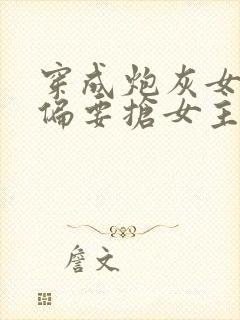 穿成炮灰女
偏要搶女主
詹文